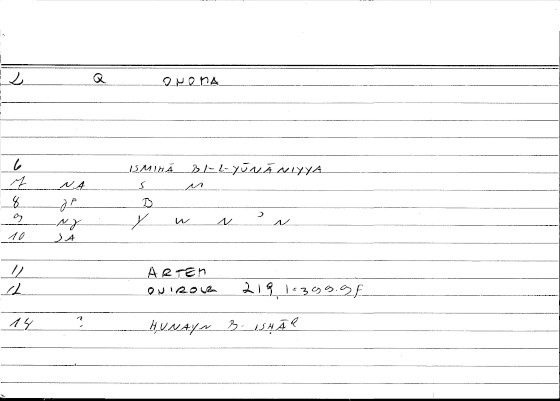 2 Q ONOMA
6 ISMIHĀ BI-L-YŪNĀNIYYA
7 NA S M
8 gP D
9 Ng Y W N ʾ N
10 JA
11 ARTEM
12 ONIROCR 219,1=399.9f
14 ? ḤUNAYN B. ISḤĀQ